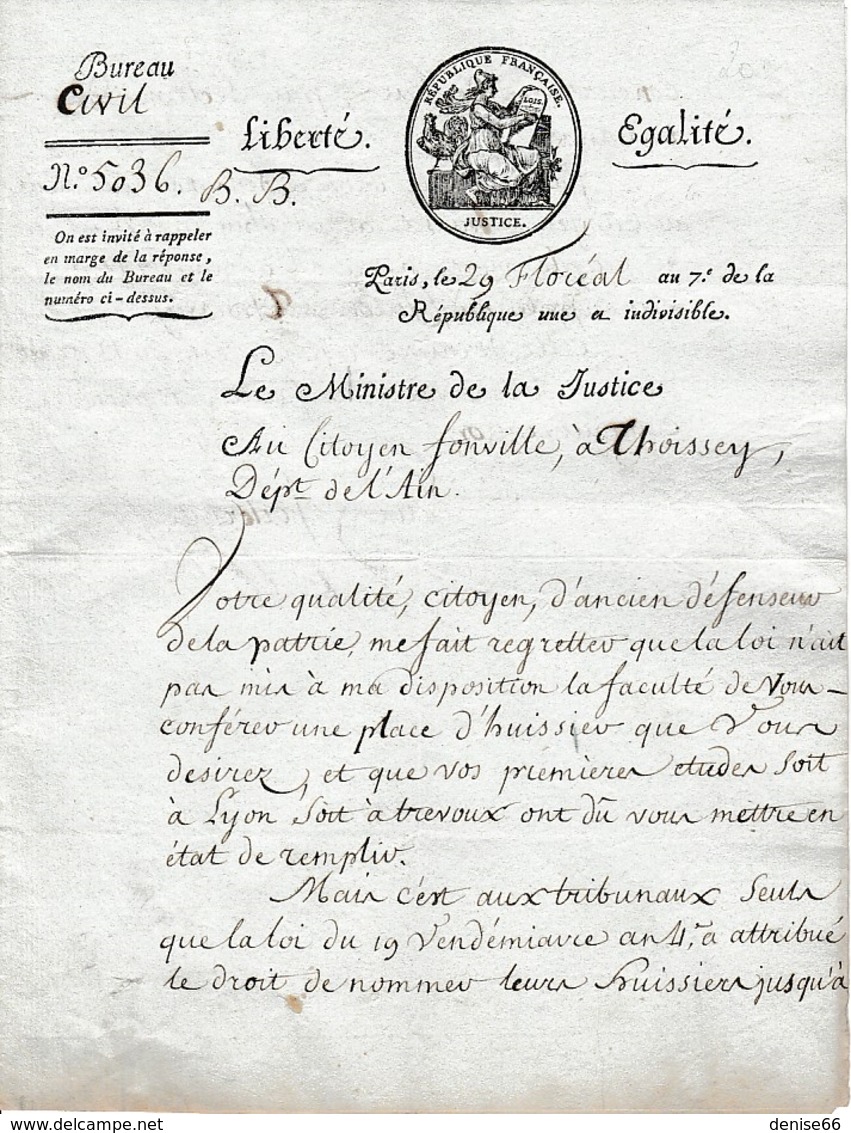 Bureau
Civil
N.º 5036. B. B.
On est invité à rappeler
en marge de la réponse,
le nom du Bureau et le
numéro ci-dessus.
Liberté.
RÉPUBLIQUE FRANÇAISE.
LOIS.
JUSTICE.
Egalité.
Paris, le 29 Floréal au 7.e de la
République une et indivisible.
Le Ministre de la Justice
Au Citoyen fonville, à Thoissey,
Dépt. de l'Ain.
Votre qualité, citoyen, d'ancien défenseur
de la patrie, me fait regretter que la loi n'ait
pas mis à ma disposition la faculté de vous
conférer une place d'huissier que vous
desirez, et que vos prémières etudes soit
à Lyon soit à trevoux ont dû vous mettre en
état de remplir.
Mais c'est aux tribunaux seuls
que la loi du 19 Vendémiaire an 4.e a attribué
le droit de nommer leurs huissiers jusqu'à
denise66